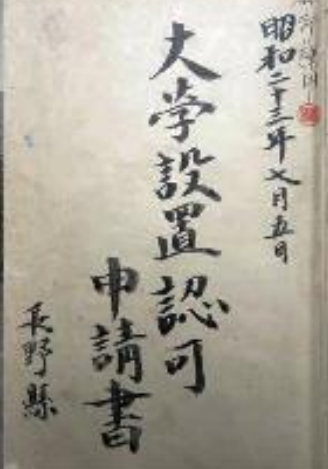 昭和二十三年七月五日
大学設置認可
申請書
長野縣